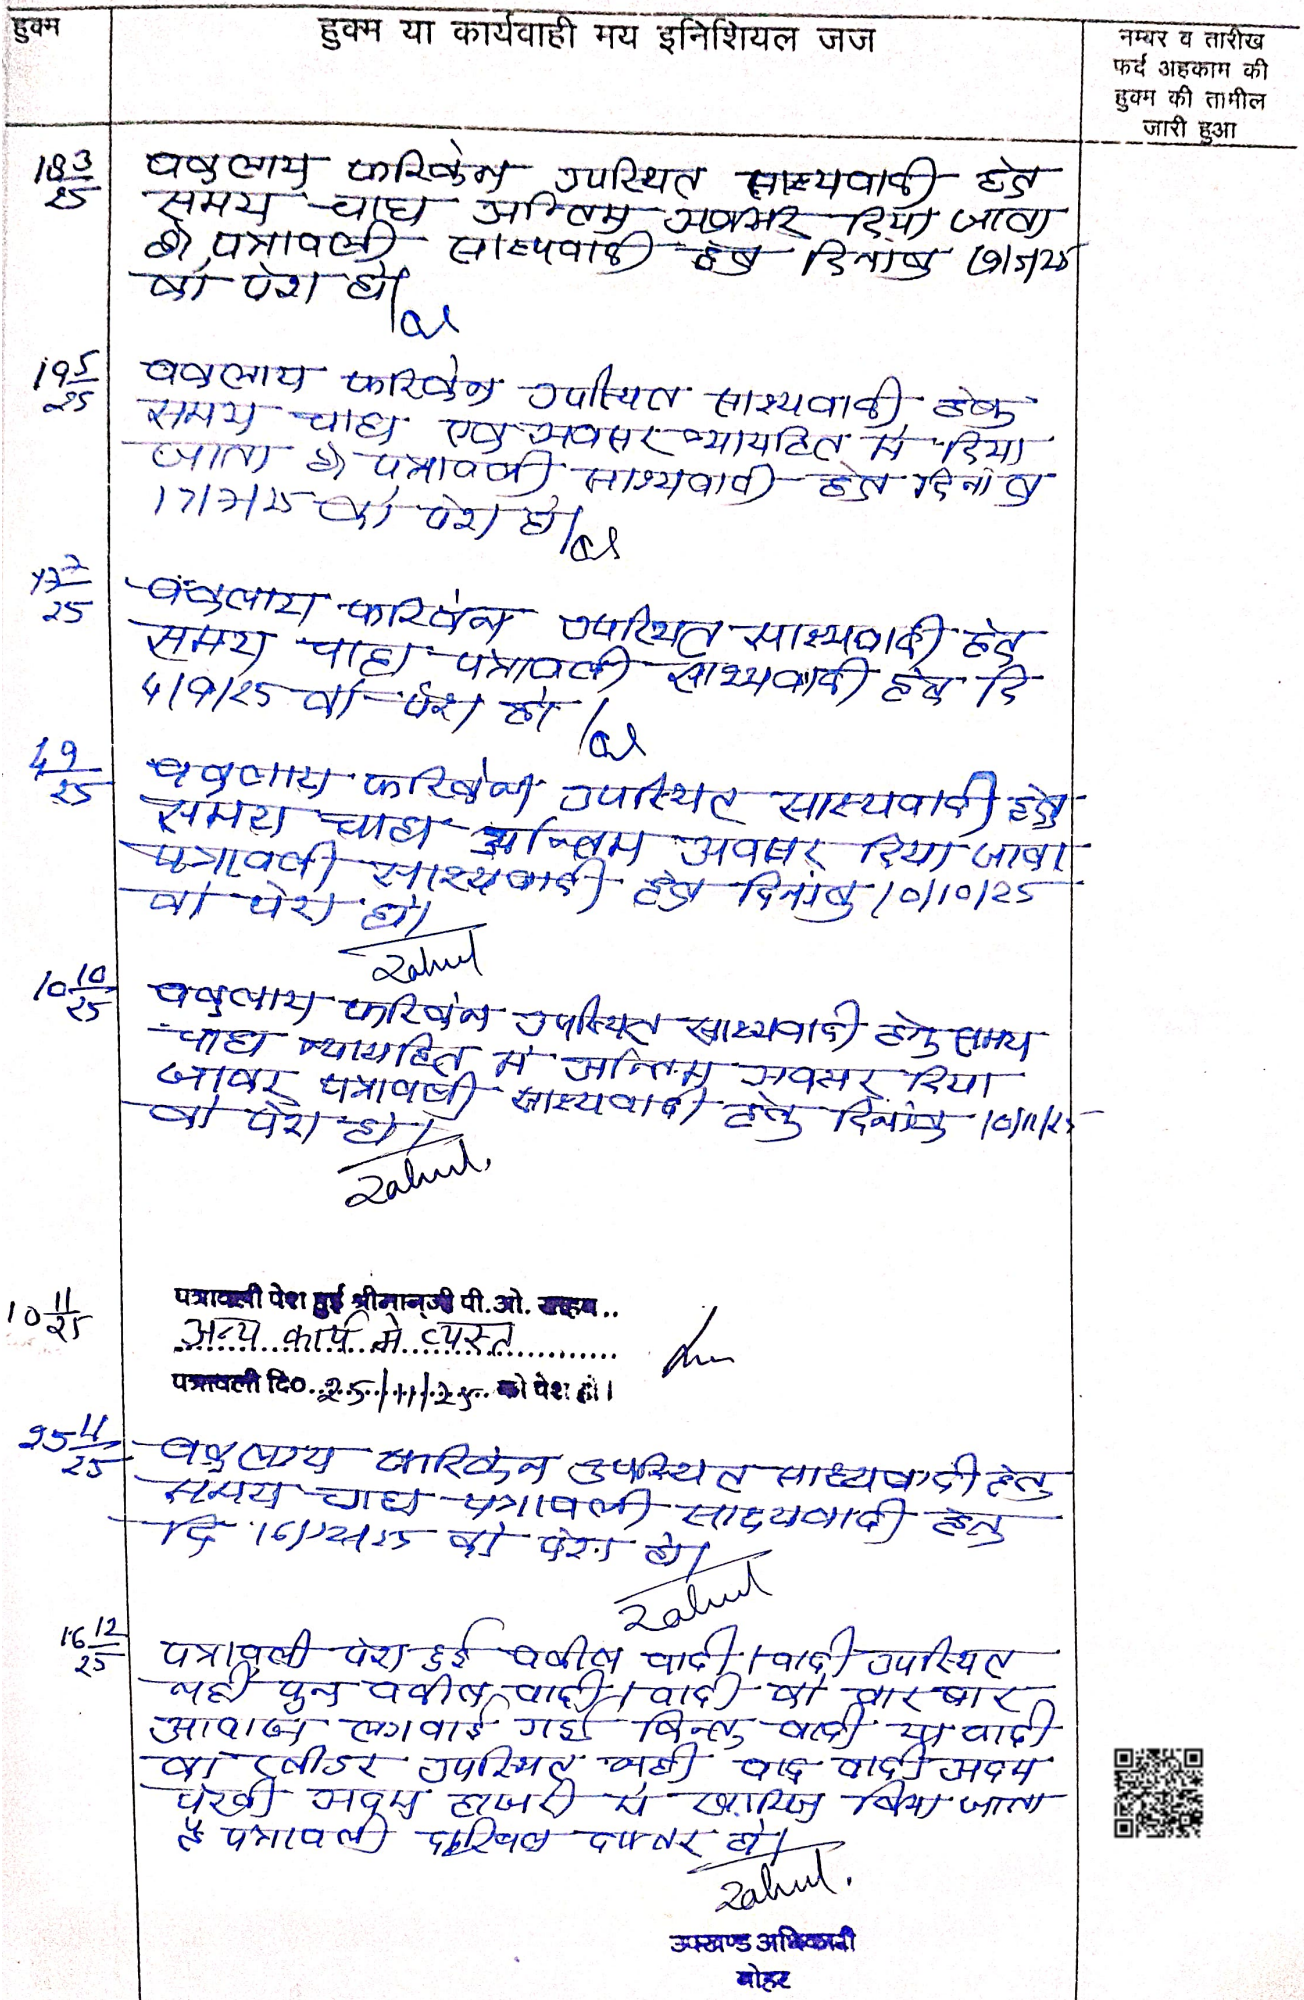 हुक्म
हुक्म या कार्यवाही मय इनिशियल जज
नम्बर व तारीख
फर्द अहकाम की
हुक्म की तामील
जारी हुआ
18 3/25
वकुलाय फरिकेन उपस्थित साक्ष्यवादी हेतु
समय चाहा अन्तिम अवसर दिया जाता
है। पत्रावली साक्ष्यवादी हेतु दिनांक 19/5/25
को पेश हो।
19 5/25
वकुलाय फरिकेन उपस्थित साक्ष्यवादी हेतु
समय चाहा एक अवसर न्यायहित मे दिया
जाता है। पत्रावली साक्ष्यवादी हेतु दिनांक
17/7/25 को पेश हो।
17 7/25
वकुलाय फरिकेन उपस्थित साक्ष्यवादी हेतु
समय चाहा पत्रावली साक्ष्यवादी हेतु दि
4/9/25 को पेश हो।
4 9/25
वकुलाय फरिकेन उपस्थित साक्ष्यवादी हेतु
समय चाहा अन्तिम अवसर दिया जाता
पत्रावली साक्ष्यवादी हेतु दिनांक 10/10/25
को पेश हो।
Rahul
10 10/25
वकुलाय फरिकेन उपस्थित साक्ष्यवादी हेतु समय
चाहा न्यायहित मे अन्तिम अवसर दिया
जाकर पत्रावली साक्ष्यवादी हेतु दिनांक 10/11/25
को पेश हो।
Rahul.
10 11/25
पत्रावली पेश हुई श्रीमान्जी पी.ओ. साहब..
अन्य कार्य मे व्यस्त
पत्रावली दि०..25/11/25.. को पेश हो।
25 11/25
वकुलाय फारिकेन उपस्थित साक्ष्यवादी हेतु
समय चाहा पत्रावली साक्ष्यवादी हेतु
दि 16/12/25 को पेश हो।
Rahul
16 12/25
पत्रावली पेश हुई वकील वादी/वादी उपस्थित
नही पुनः वकील वादी/वादी को बार बार
आवाज लगवाई गई किन्तु वादी या वादी
का प्लीडर उपस्थित नही वाद वादी अदम
पेरवी अदम हाजरी मे खारिज किया जाता
है पत्रावली दाखिल दफ्तर हो।
Rahul.
उपखण्ड अधिकारी